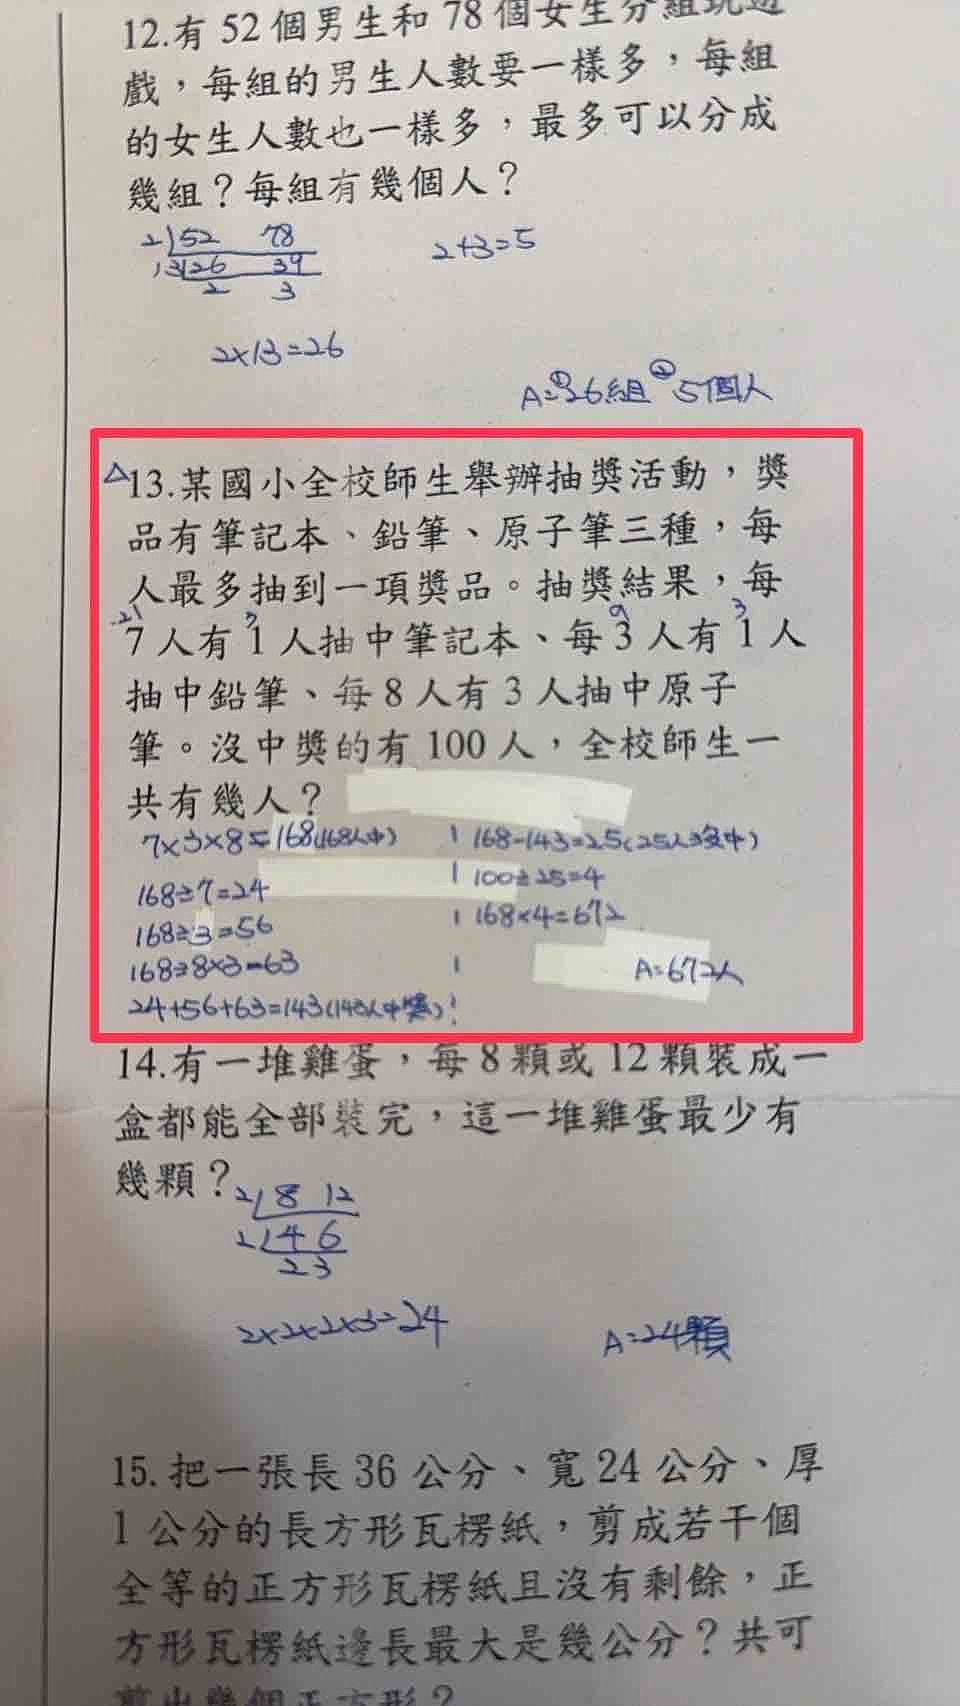 12.有 52 個男生和 78 個女生分組玩遊
戲，每組的男生人數要一樣多，每組
的女生人數也一樣多，最多可以分成
幾組？每組有幾個人？
2 52 78
13 26 39
2 3
2+3=5
2×13=26
A=①26組 ②5個人
△13.某國小全校師生舉辦抽獎活動，獎
品有筆記本、鉛筆、原子筆三種，每
人最多抽到一項獎品。抽獎結果，每
21 3 9 3
7 人有 1 人抽中筆記本、每 3 人有 1 人
抽中鉛筆、每 8 人有 3 人抽中原子
筆。沒中獎的有 100 人，全校師生一
共有幾人？
7×3×8=168(168人中)
168÷7=24
168÷3=56
168÷8×3=63
24+56+63=143(143人中獎)
168-143=25(25人沒中)
100÷25=4
168×4=672
A=672人
14.有一堆雞蛋，每 8 顆或 12 顆裝成一
盒都能全部裝完，這一堆雞蛋最少有
幾顆？
2 8 12
2 4 6
2 3
2×2×2×3=24
A=24顆
15.把一張長 36 公分、寬 24 公分、厚
1 公分的長方形瓦楞紙，剪成若干個
全等的正方形瓦楞紙且沒有剩餘，正
方形瓦楞紙邊長最大是幾公分？共可
剪出幾個正方形？